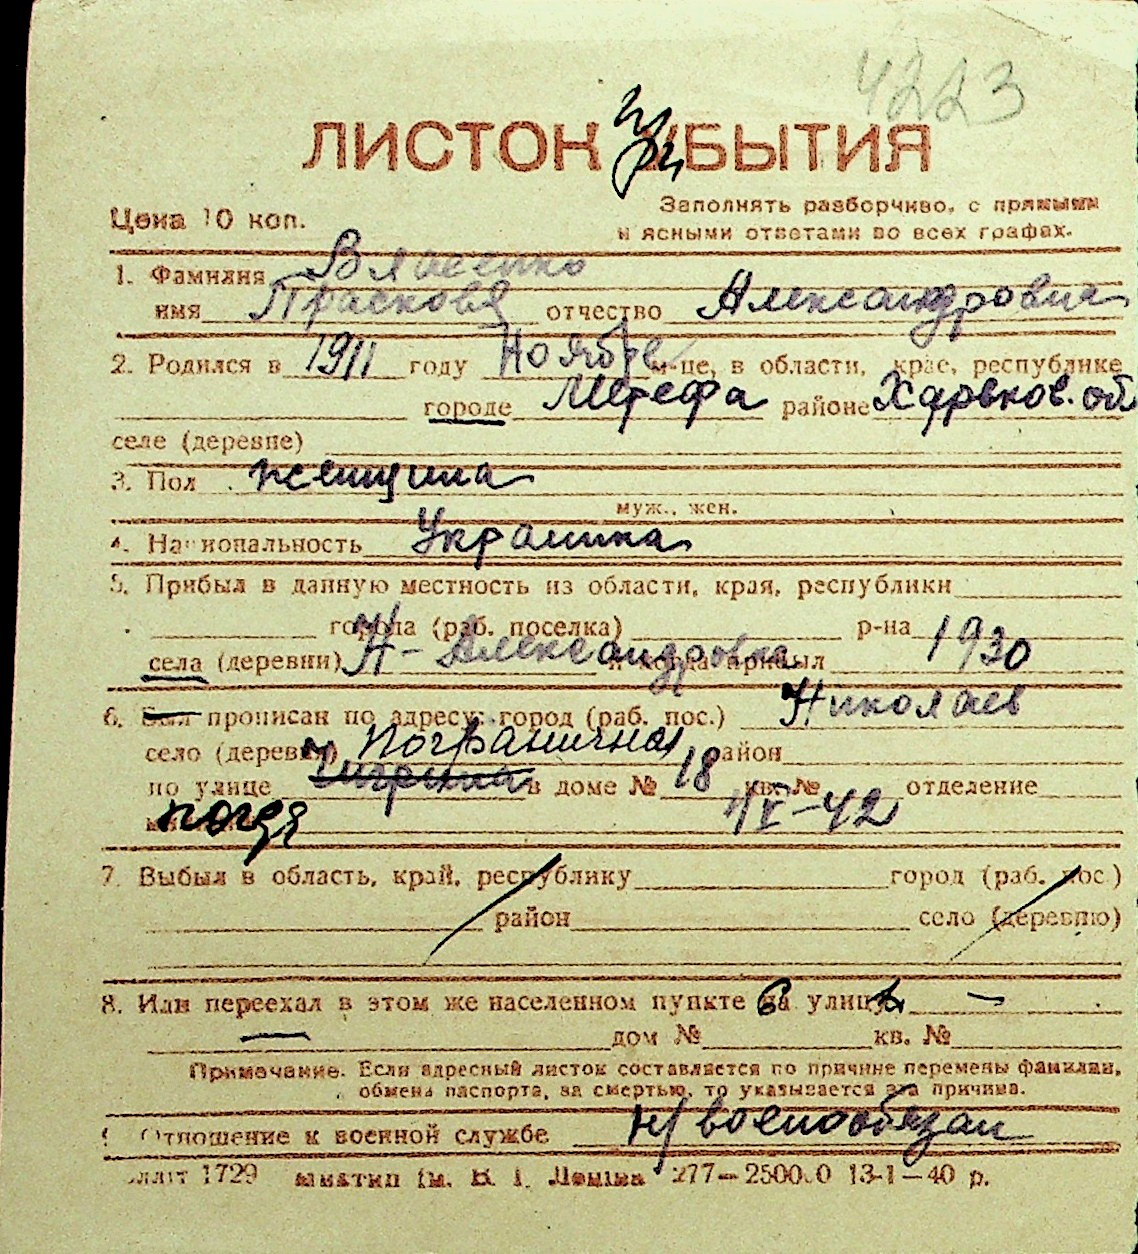 4223
ЛИСТОК при БЫТИЯ
Цена 10 коп.
Заполнять разборчиво, с прямыми
и ясными ответами во всех графах.
1. Фамилия Власенко
имя Прасковя отчество Александровна
2. Родился в 1911 году Ноябре м-це, в области, крае, республике
городе Мерефа районе Харвков. об
селе (деревне)
3. Пол женщина
муж., жен.
4. Национальность Украинка
5. Прибыл в данную местность из области, края, республики
города (раб. поселка) р-на
села (деревни) Н-Александровка и когда прибыл 1930
6. Был прописан по адресу: город (раб. пос.) Николаев
село (деревня) Пограничная район
по улице в доме № 18 кв. № отделение
1/V-42
7. Выбыл в область, край, республику город (раб. пос.)
район село (деревню)
8. Или переехал в этом же населенном пункте на улицу –
— дом № кв. №
Примечание. Если адресный листок составляется по причине перемены фамилии,
обмена паспорта, за смертью, то указывается эта причина.
9. Отношение к военной службе н/военообязан
1729 Ім. В. І. Леніна 277—25000 13-1—40 р.